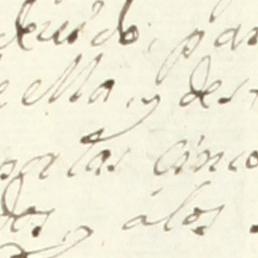 deuido, par
ella, y des
patas cinco
dos, y álos